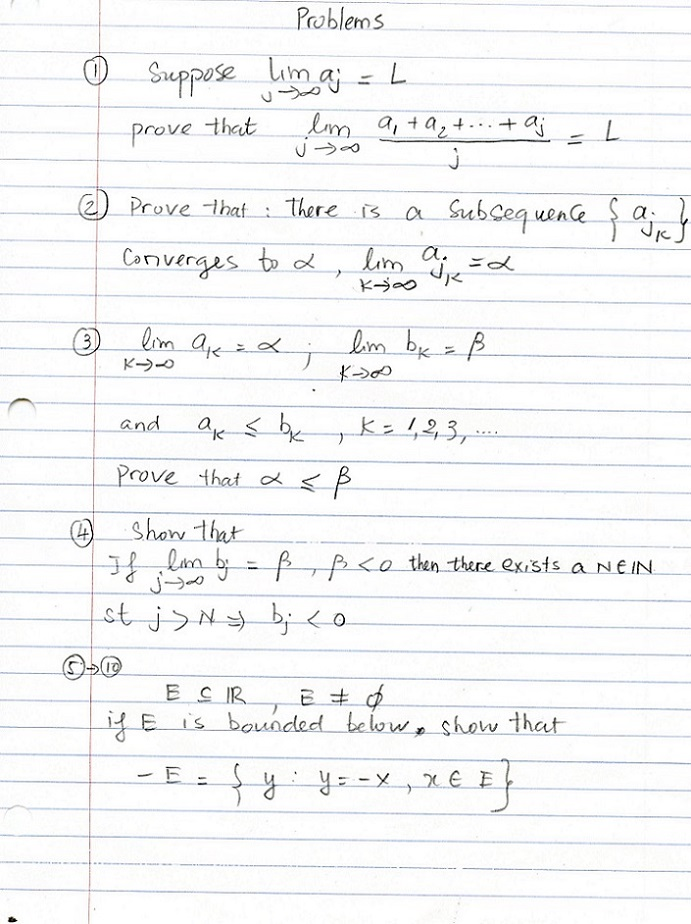 Problems
① Suppose lim_{j→∞} a_j = L
prove that lim_{j→∞} (a_1 + a_2 + ··· + a_j)/j = L
② Prove that : There is a Subsequence { a_{j_k} }
Converges to α , lim_{K→∞} a_{j_k} = α
③ lim_{K→∞} a_k = α ; lim_{K→∞} b_k = β
and a_k ≤ b_k , K = 1, 2, 3, ....
prove that α ≤ β
④ Show that
If lim_{j→∞} b_j = β , β < 0 then there exists a N ∈ ℕ
st j > N ⇒ b_j < 0
⑤→⑩
E ⊆ ℝ , E ≠ ∅
if E is bounded below, show that
- E = { y : y = -x , x ∈ E }